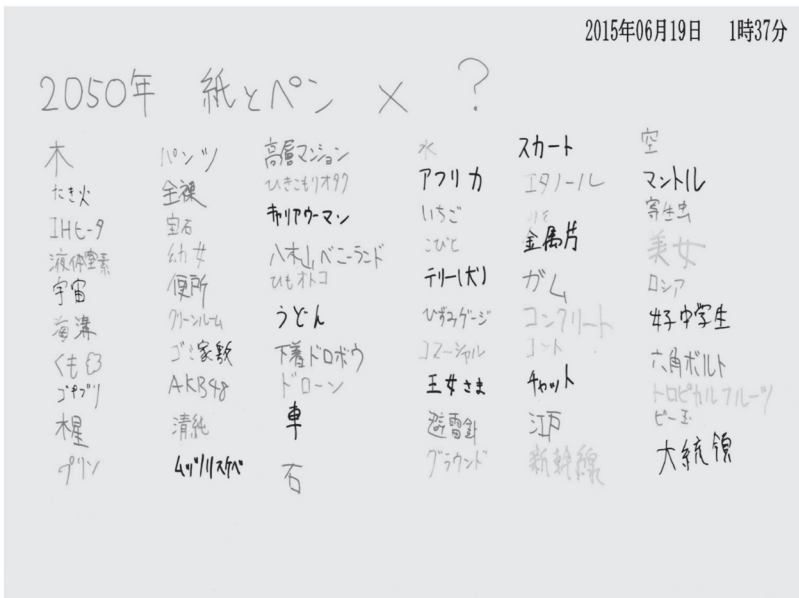 2015年06月19日 1時37分
2050年 紙とペン × ?
木
たき火
IHヒータ
液体窒素
宇宙
海溝
くもの巣
ゴキブリ
木星
プリン
パンツ
全裸
宝石
幼女
便所
クリーンルーム
ゴミ家敷
AKB48
清純
ムッツリスケベ
高層マンション
ひきこもりオタク
キャリアウーマン
八木山ベニーランド
ひもオトコ
うどん
下着ドロボウ
ドローン
車
石
水
アフリカ
いちご
こびと
テリー(犬)
ひずみゲージ
コマーシャル
王女さま
避雷針
グラウンド
スカート
エタノール
金属片
ガム
コンクリート
コート
チャット
江戸
新幹線
空
マントル
寄生虫
美女
ロシア
女子中学生
六角ボルト
トロピカルフルーツ
ビー玉
大統領